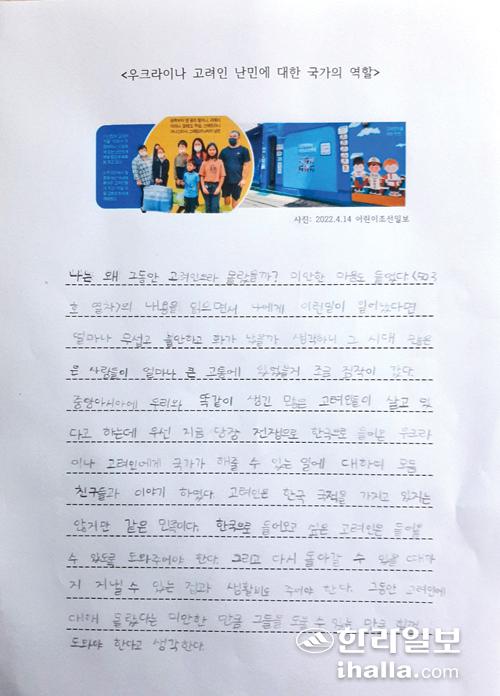 <우크라이나 고려인 난민에 대한 국가의 역할>
사진: 2022.4.14 어린이조선일보
나는 왜 그동안 고려인으로라 몰랐을까? 미안한 마음도 들었다. <503
호 열차>의 내용을 읽으면서 나에게 이런일이 일어났다면
얼마나 무섭고 불안하고 화가 났을까 생각하니 그 시대
은 사람들이 얼마나 큰 고통에 있었을지 조금 짐작이 갔다.
중앙아시아에 우리와 똑같이 생긴 많은 고려인들이 살고 있
다고 하는데 우선 지금 당장 전쟁으로 한국으로 들어온 우크라
이나 고려인에게 국가가 해줄 수 있는 일에 대하여 모둠
친구들과 이야기 하였다. 고려인은 한국 국적을 가지고 있지는
않지만 같은 민족이다. 한국으로 들어오고 싶은 고려인은 들어올
수 있도록 도와주어야 한다. 그리고 다시 돌아갈 수 있을 때까
지 지낼 수 있는 집과 생활비도 주어야 한다. 그동안 고려인에
대해 몰랐다는 미안한 만큼 그들을 도울 수 있는 만큼 힘껏
도와야 한다고 생각한다.
한라일보
ihalla.com